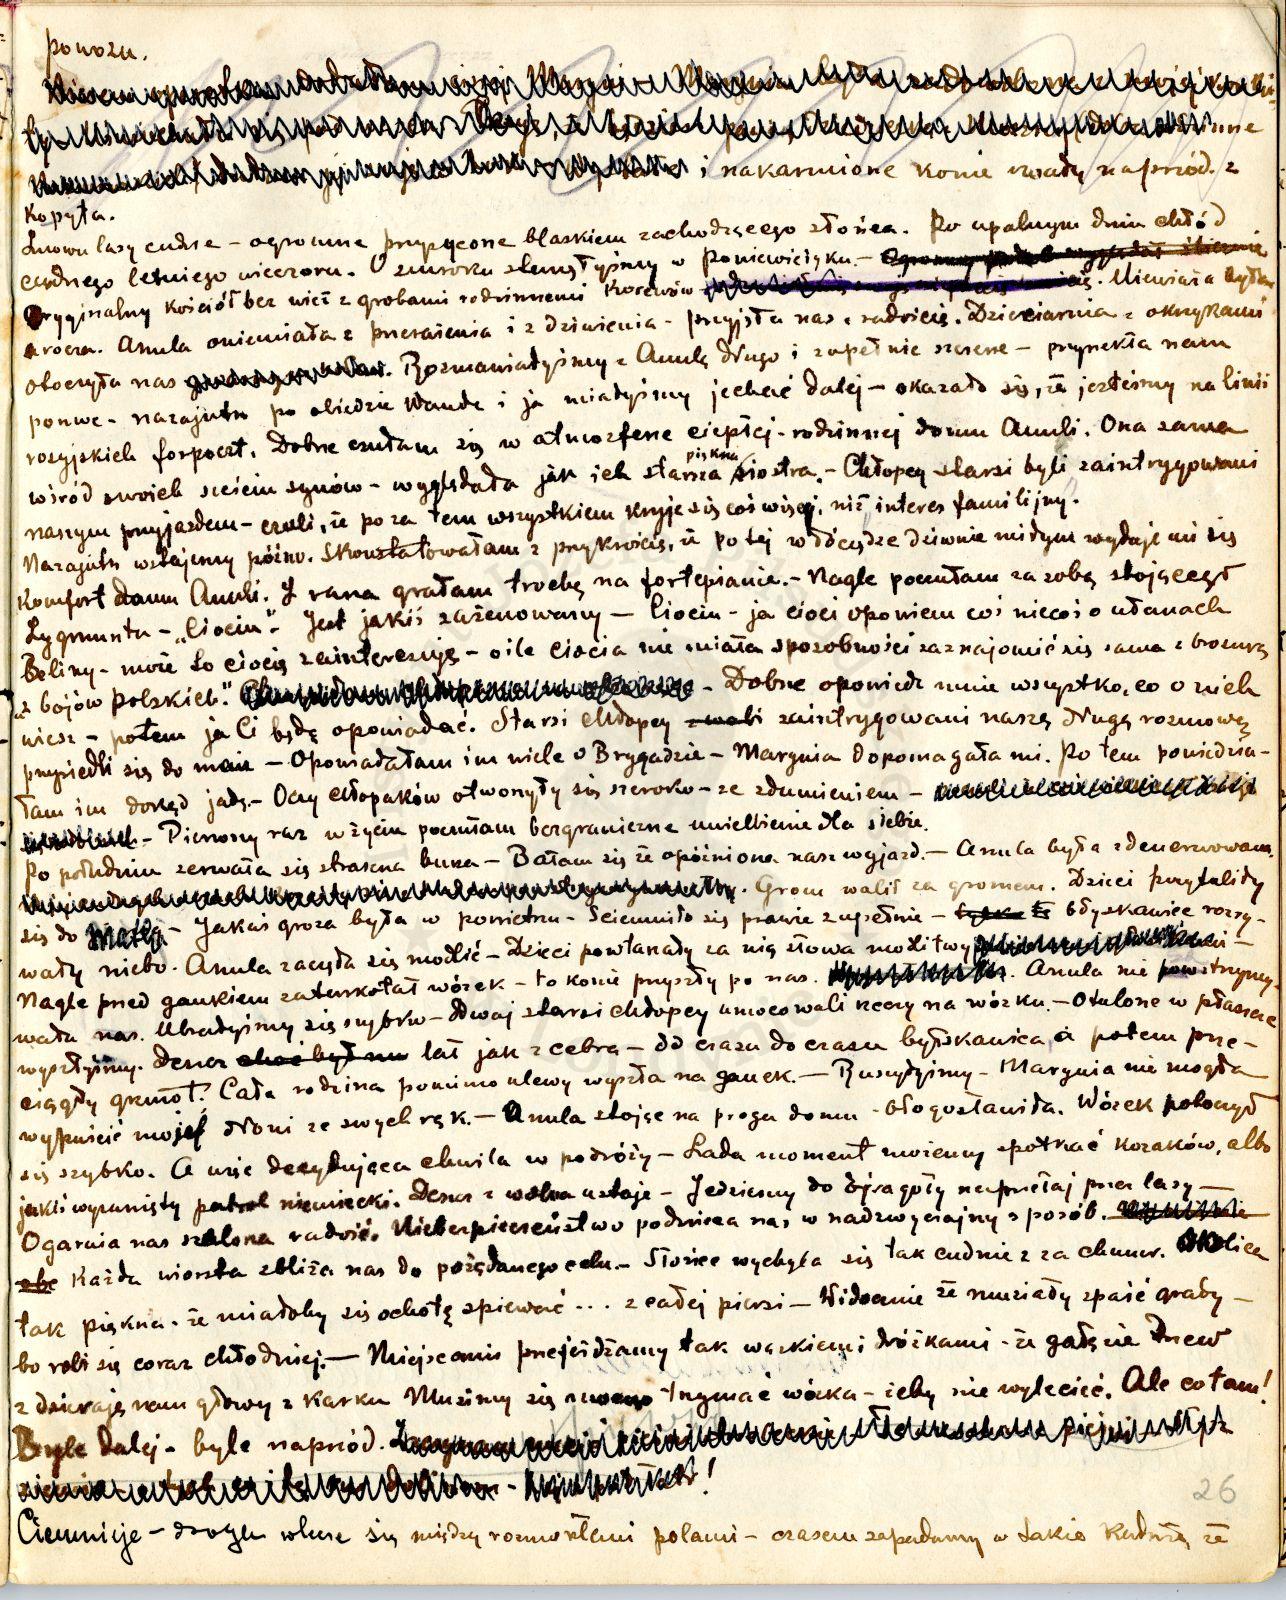 powozu.
i nakarmione konie rwały naprzód. z
Kopyta.
Znowu lasy cudne – ogromne przesycone blaskiem zachodzącego słońca. Po upalnym dniu chłód
cudnego letniego wieczoru. O zmroku stanęłyśmy w Poniewieżyku. –
Oryginalny kościół bez wież z grobami rodzinnemi . Niewiaża
urocza. Anula oniemiała z przerażenia i zdziwienia – przyjęła nas z radością. Dzieciarnia z okrzykami
otoczyła nas . Rozmawiałyśmy z Anulą długo i zupełnie szczerze – przyrzekła nam
pomoc – nazajutrz po obiedzie Wanda i ja miałyśmy jechać dalej – okazało się, że jesteśmy na linii
rosyjskich forpoczt. Dobrze czułam się w atmosferze ciepłej – rodzinnej domu Anuli. Ona sama
wśród swoich sześciu synów – wyglądała jak ich starsza piękna siostra. – Chłopcy starsi byli zaintrygowani
naszym przyjazdem – czuli, że po za tem wszystkiem kryje się coś więcej, niż "interes familijny".
Nazajutrz wstajemy późno. Skonstatowałam z przykrością, że po tej włóczędze dziwnie miłym wydaje mi się
Komfort domu Anuli. Z rana grałam trochę na fortepianie. – Nagle poczułam za sobą stojącego
Zygmunta – „Ciociu". Jest jakiś zażenowany — Ciociu – ja cioci opowiem coś niecoś o ułanach
Beliny – może to ciocię zainteresuje – o ile ciocia nie miała sposobności zaznajomić się sama z broszurą
„z bojów polskich". – Dobrze opowiedz mnie wszystko, co o nich
wiesz – potem ja Ci będę opowiadać. Starsi chłopcy zaintrygowani naszą długą rozmową
przysiedli się do mnie — Opowiadałam im wiele o Brygadzie – Marynia dopomagała mi. Po tem powiedzia-
łam im dokąd jadę. – Oczy chłopaków otworzyły się szeroko – ze zdumieniem –
– Pierwszy raz w życiu poczułam bezgraniczne uwielbienie dla siebie.
Po południu zerwała się straszna burza – Bałam się że opóźniona nasz wyjazd. — Anula była zdenerwowana.
. Grom walił za gromem. Dzieci przytuliły
się do Matki – Jakaś groza była w powietrzu – Ściemniło się prawie zupełnie – błyskawice rozry-
wały niebo. Anula zaczęła się modlić – Dzieci powtarzały za nią słowa modlitwy –
Nagle przed gankiem zaturkotał wózek – to konie przyszły po nas. . Anula nie powstrzymy-
wała nas. Ubrałyśmy się szybko – Dwaj starsi chłopcy umocowali rzeczy na wózku. – Otulone w płaszcze
wyszłyśmy. Deszcz lał jak z cebra – od czasu do czasu błyskawica, a potem prze-
ciągły grzmot. Cała rodzina pomimo ulewy wyszła na ganek. — Ruszyłyśmy – Marynia nie mogła
wypuścić mojej dłoni ze swych rąk. – Anula stojąc na progu domu – błogosławiła. Wózek potoczył
się szybko. A więc decydująca chwila w podróży – Lada moment możemy spotkać kozaków, albo
jakiś wysunięty patrol niemiecki. Deszcz z wolna ustaje – Jedziemy do Ejragoły naprzełaj przez lasy —
Ogarnia nas szalona radość. Niebezpieczeństwo podnieca nas w nadzwyczajny sposób.
Każda wiorsta zbliża nas do pożądanego celu. – Słońce wychyla się tak cudnie z za chmur. Okolica
tak piękna – że miałoby się ochotę śpiewać ... z całej piersi — Widocznie że musiały spaść grady –
bo robi się coraz chłodniej. — Miejscami przejeżdżamy tak wąskiemi dróżkami – że gałęzie drzew
zdzierają nam głowy z karku Musimy się mocno trzymać wózka – żeby nie wylecieć. Ale co tam!
Byle dalej – byle naprzód.
!
26
Ciemnieje – droga wlecze się między rozmokłemi polami – czasem zapadamy w takie kałuże, że